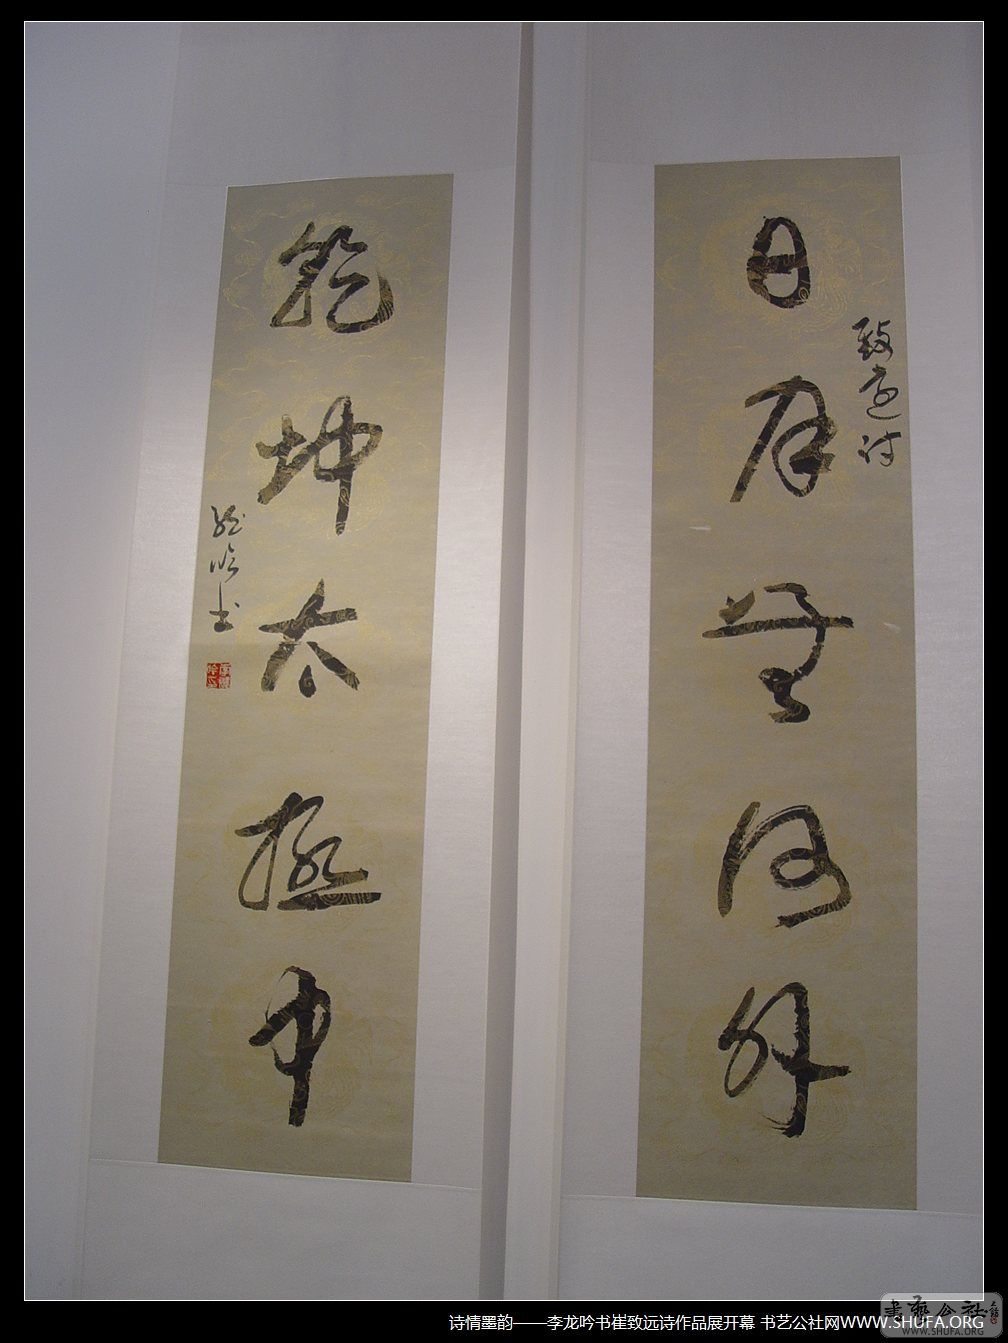 日月無何外
致遠诗
乾坤太極中
龍吟书
诗情墨韵——李龙吟书崔致远诗作品展开幕 书艺公社网WWW.SHUFA.ORG
書藝公社
WWW.SHUFA.ORG